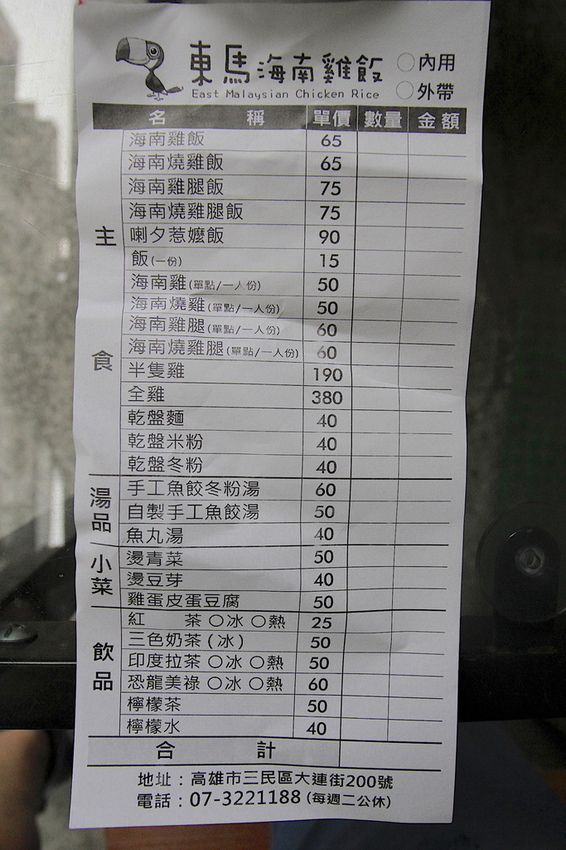 東馬海南雞飯 ○內用
East Malaysian Chicken Rice ○外帶
名 稱 單價 數量 金額
主食
海南雞飯 65
海南燒雞飯 65
海南雞腿飯 75
海南燒雞腿飯 75
喇夕惹嬤飯 90
飯(一份) 15
海南雞(單點/一人份) 50
海南燒雞(單點/一人份) 50
海南雞腿(單點/一人份) 60
海南燒雞腿(單點/一人份) 60
半隻雞 190
全雞 380
乾盤麵 40
乾盤米粉 40
乾盤冬粉 40
湯品
手工魚餃冬粉湯 60
自製手工魚餃湯 50
魚丸湯 40
小菜
燙青菜 50
燙豆芽 40
雞蛋皮蛋豆腐 50
飲品
紅 茶 ○冰 ○熱 25
三色奶茶(冰) 50
印度拉茶 ○冰 ○熱 50
恐龍美祿 ○冰 ○熱 60
檸檬茶 50
檸檬水 40
合 計
地址：高雄市三民區大連街200號
電話：07-3221188 (每週二公休)